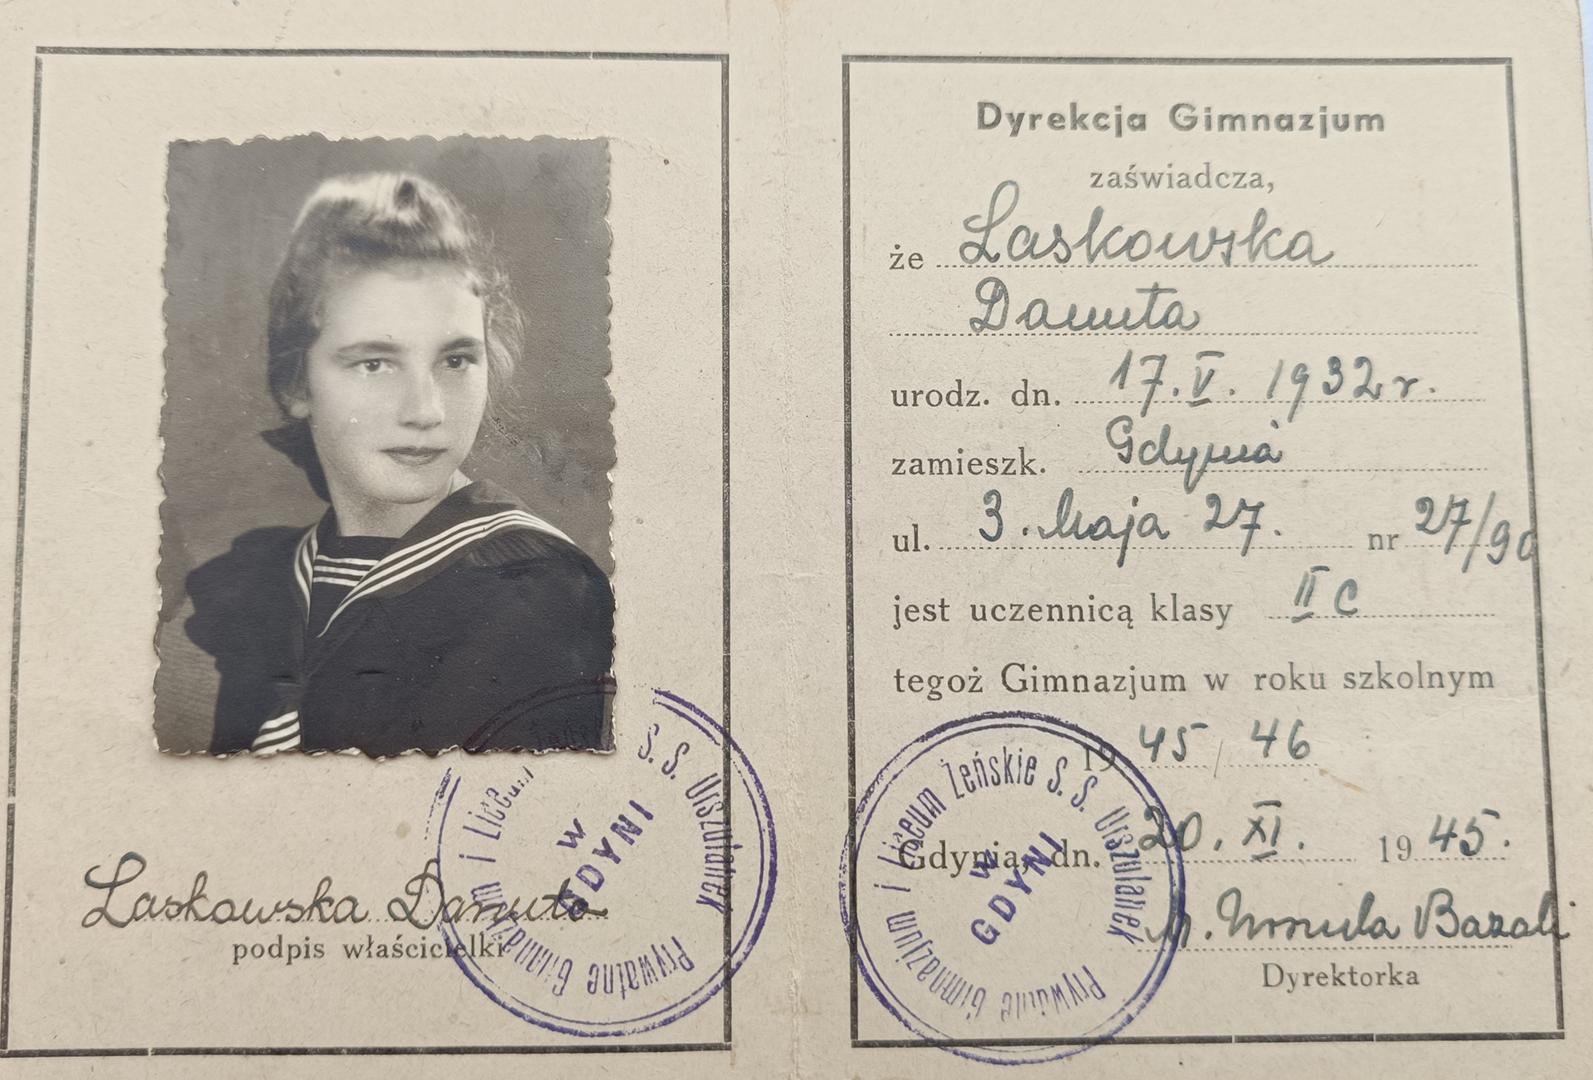 Laskowska Danuta
podpis właścicielki
Prywatne Gimnazjum i Liceum
S. S. Urszulanek
W
GDYNI
Dyrekcja Gimnazjum
zaświadcza,
że Laskowska
Danuta
urodz. dn. 17. V. 1932 r.
zamieszk. Gdynia
ul. 3. Maja 27. nr 27/90
jest uczennicą klasy II c
tegoż Gimnazjum w roku szkolnym
19 45 / 46
Gdynia, dn. 20. XI. 1945.
Urszula
Dyrektorka
Prywatne Gimnazjum i Liceum Żeńskie S. S. Urszulanek
W
GDYNI